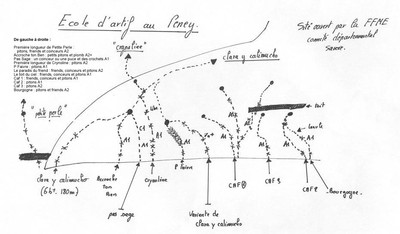 Ecole d'artif au Peney.
Site ouvert par la FFME
comité départemental
Savoie.
De gauche à droite :
Première longueur de Petite Perle :
pitons, friends et coinceurs A2
Accroche ton Ben : petits pitons et pitons A2+
Pas Sage : un coinceur ou une place et des crochets A1
Première longueur de Crynoline : pitons A1
P'Favre : pitons A1
Le paradis du friend : friends, coinceurs et pitons A2
Le toit du ciel : friends, coinceurs et pitons A1
Caf 1 : friends, coinceurs et pitons A1
Caf 2 : pitons A2
Caf 3 : pitons A2
Bourgogne : pitons et friends A2
"crapuline"
clara y calimucho
"petite perle"
toit
clara y calimucho
(6b+. 180m)
Accroche
ton
Ben
pas sage
Crynoline
P'Favre
Variante de
clara y calimucho
CAF
CAF
CAF
Bourgogne.
A1
A1
A1
A1
A1
A1